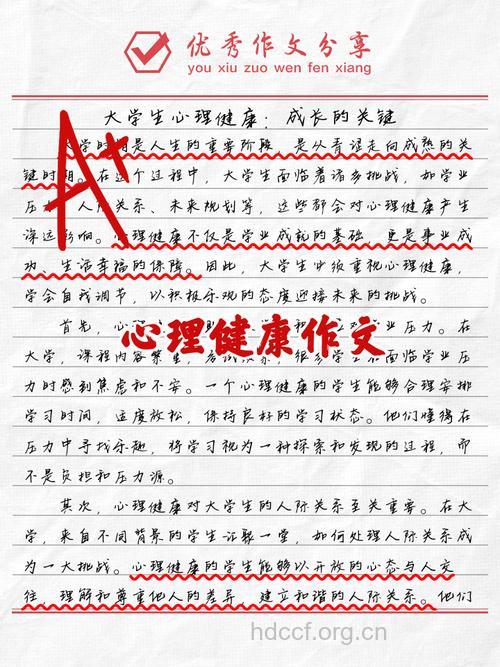 优秀作文分享
you xiu zuo wen fen xiang
大学生心理健康：成长的关键
大学时期是人生的重要阶段，是从青涩走向成熟的关
键时期。在这个过程中，大学生面临着诸多挑战，如学业
压力、人际关系、未来规划等，这些都会对心理健康产生
深远影响。心理健康不仅是学业成就的基础，更是事业成
功、生活幸福的保障。因此，大学生必须重视心理健康，
学会自我调节，以积极乐观的态度迎接未来的挑战。
首先，心业压力。在
心理健康作文
大学，课程内容繁重，很多学生面临学业压
力时感到焦虑和不安。一个心理健康的学生能够合理安排
学习时间，适度放松，保持良好的学习状态。他们懂得在
压力中寻找乐趣，将学习视为一种探索和发现的过程，而
不是负担和压力源。
其次，心理健康对大学生的人际关系至关重要。在大
学，来自不同背景的学生汇聚一堂，如何处理人际关系成
为一大挑战。心理健康的学生能够以开放的心态与人交
往，理解和尊重他人的差异，建立和谐的人际关系。他们
A+
hdccf.org.cn